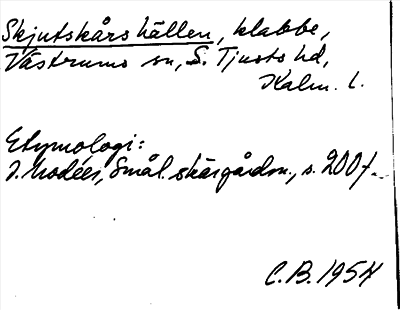 Skjutskårshällen, klabbe,
Västrums sn, S. Tjusts hd,
Kalm. l.
Etymologi:
I. Modéer, Smål. skärgårdsn., s. 200 f.
C.B. 1954